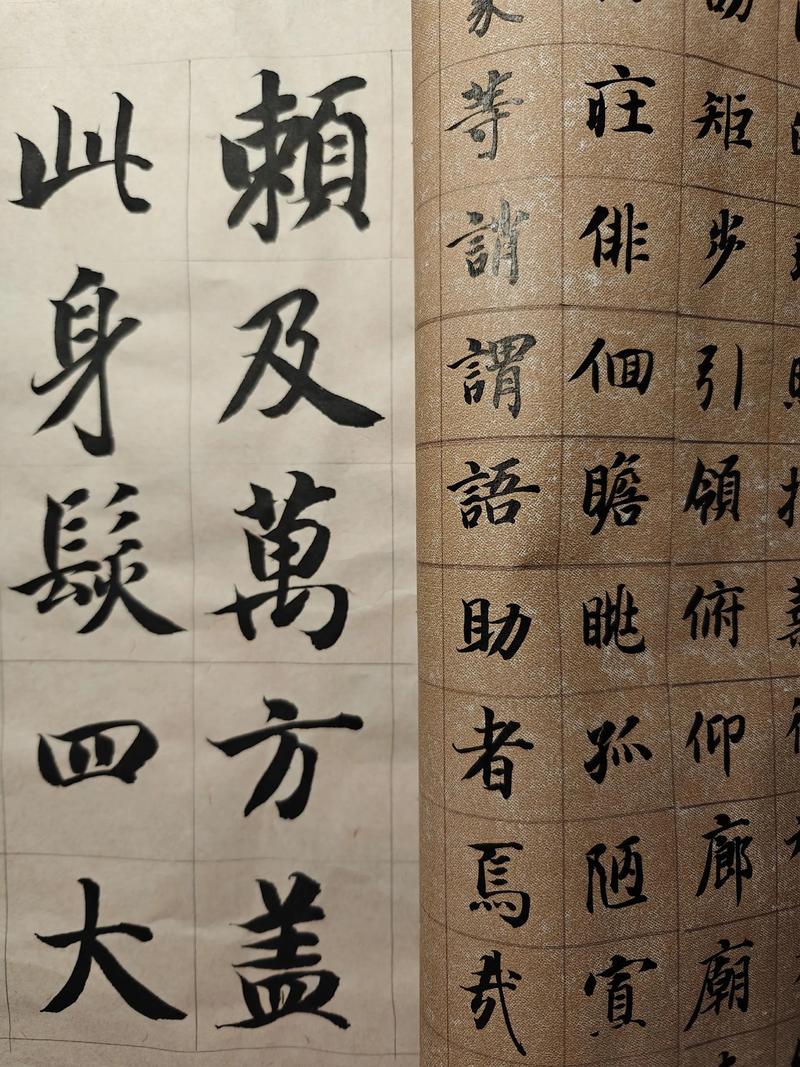 矩步引領俯仰廊廟
庄俳佪瞻眺孤陋寡
蒙等誚謂語助者焉哉
賴及萬方盖
此身髮四大